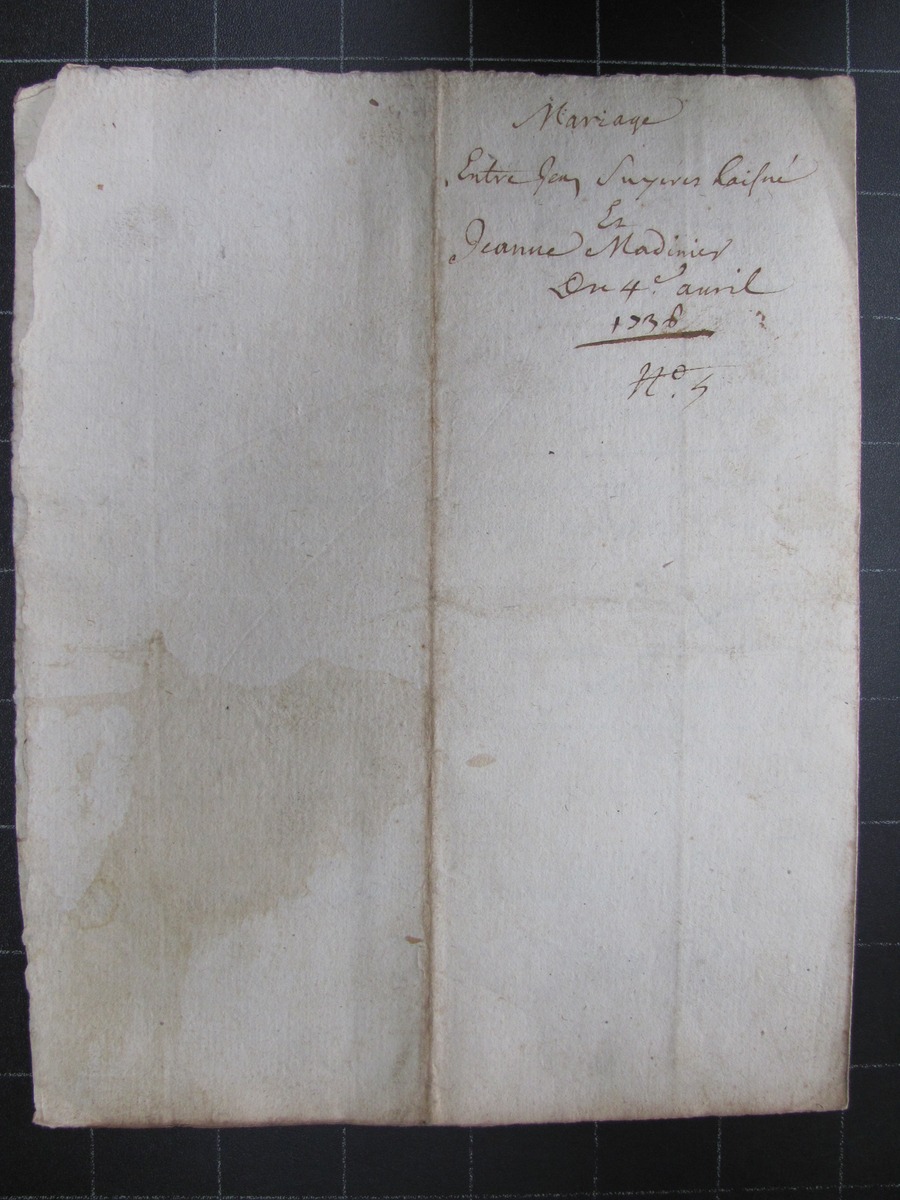 Mariage
Entre Jean Supires laisné
Et
Jeanne Madinier
Du 4.e avril
1738
No. 5